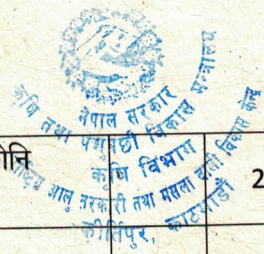 नेपाल सरकार
कृषि तथा पशुपन्छी विकास मन्त्रालय
कृषि विभाग
राष्ट्रिय आलु तरकारी तथा मसला बाली विकास केन्द्र
कीर्तिपुर, काठमाडौं
ोनि
2